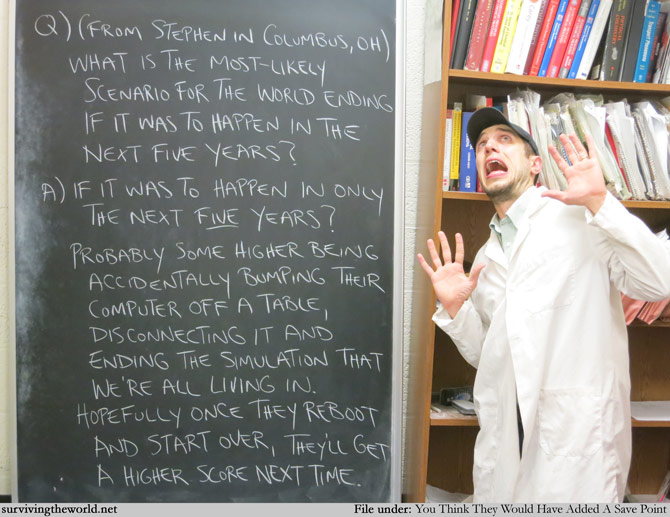 Q) (FROM STEPHEN IN COLUMBUS, OH)
WHAT IS THE MOST-LIKELY
SCENARIO FOR THE WORLD ENDING
IF IT WAS TO HAPPEN IN THE
NEXT FIVE YEARS?
A) IF IT WAS TO HAPPEN IN ONLY
THE NEXT FIVE YEARS?
PROBABLY SOME HIGHER BEING
ACCIDENTALLY BUMPING THEIR
COMPUTER OFF A TABLE,
DISCONNECTING IT AND
ENDING THE SIMULATION THAT
WE'RE ALL LIVING IN.
HOPEFULLY ONCE THEY REBOOT
AND START OVER, THEY'LL GET
A HIGHER SCORE NEXT TIME.
survivingtheworld.net
File under: You Think They Would Have Added A Save Point